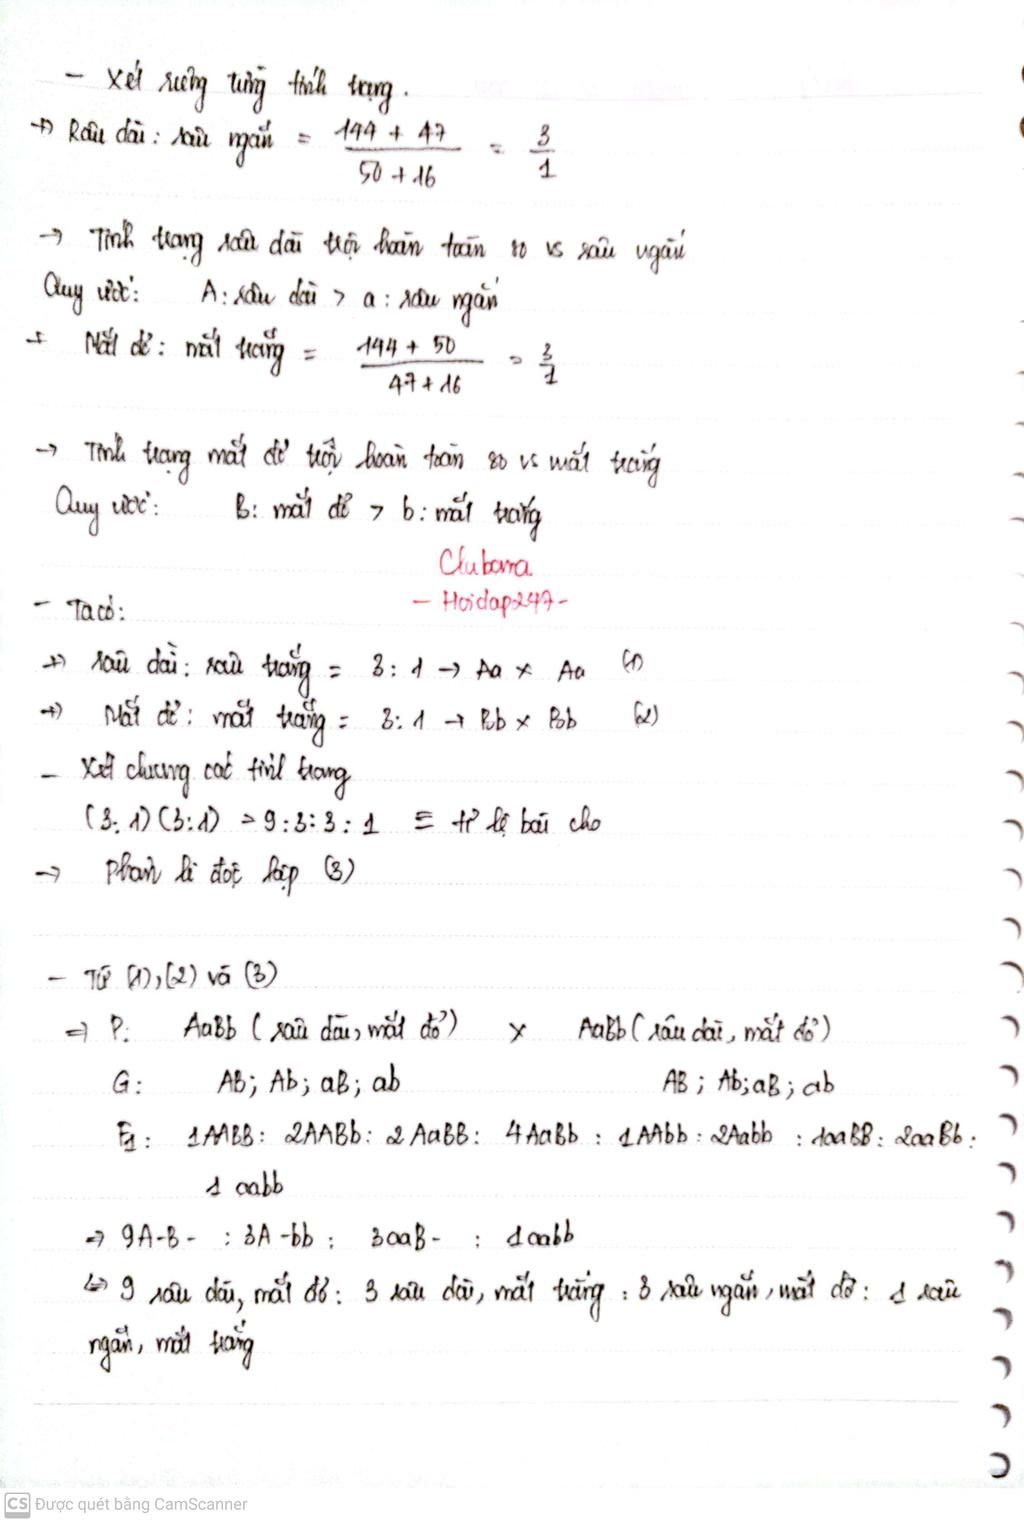 - Xét riêng từng tính trạng.
+) Râu dài : râu ngắn = (144 + 47) / (50 + 16) = 3/1
→ Tính trạng râu dài trội hoàn toàn so vs râu ngắn
Quy ước: A : râu dài > a : râu ngắn
+ Mắt đỏ : mắt trắng = (144 + 50) / (47 + 16) = 3/1
→ Tính trạng mắt đỏ trội hoàn toàn so vs mắt trắng
Quy ước: B: mắt đỏ > b: mắt trắng
Clubama
- Hoidap247-
- Ta có:
+) râu dài : râu trắng = 3 : 1 → Aa × Aa (1)
+) Mắt đỏ : mắt trắng = 3 : 1 → Bb × Bb (2)
- Xét chung các tính trạng
(3:1)(3:1) = 9:3:3:1 ≡ tỉ lệ bài cho
→ Phân li độc lập (3)
- Từ (1),(2) và (3)
⇒ P: AaBb (râu dài, mắt đỏ) × AaBb (râu dài, mắt đỏ)
G: AB; Ab; aB; ab AB; Ab; aB; ab
F1: 1AABB : 2AABb : 2AaBB : 4AaBb : 1AAbb : 2Aabb : 1aaBB : 2aaBb :
1 aabb
⇒ 9A-B- : 3A-bb : 3aaB- : 1aabb
↳ 9 râu dài, mắt đỏ : 3 râu dài, mắt trắng : 3 râu ngắn, mắt đỏ : 1 râu
ngắn, mắt trắng
CS Được quét bằng CamScanner